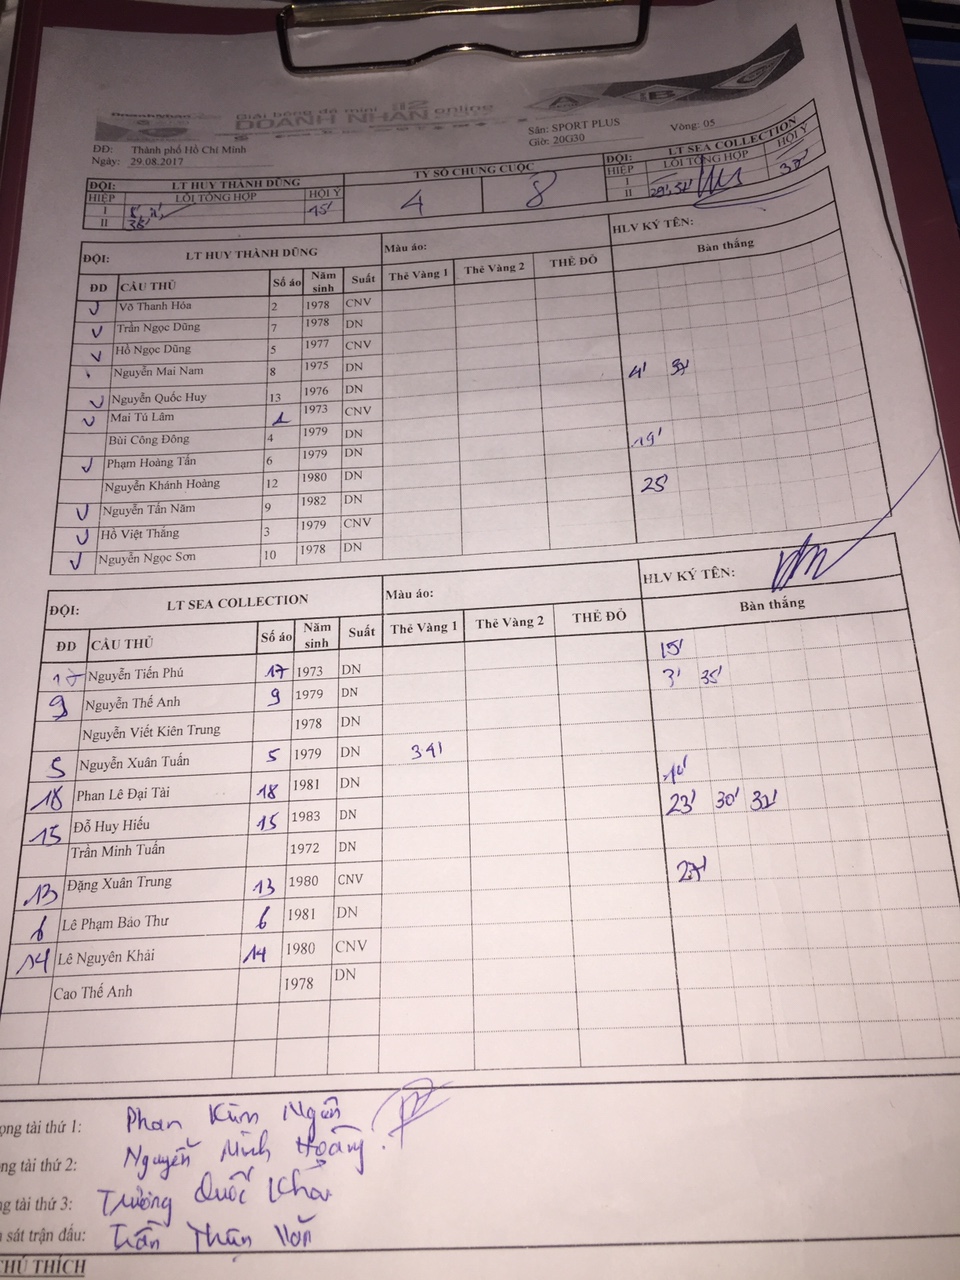 Giải bóng đá mini
DOANH NHÂN online
ĐĐ: Thành phố Hồ Chí Minh
Ngày: 29.08.2017
Sân: SPORT PLUS
Giờ: 20G30
Vòng: 05
ĐỘI: LT HUY THÀNH DŨNG TỶ SỐ CHUNG CUỘC ĐỘI: LT SEA COLLECTION
HIỆP LỖI TỔNG HỢP HỘI Ý 4 8 HIỆP LỖI TỔNG HỢP HỘI Ý
I 15' I
II II
ĐỘI: LT HUY THÀNH DŨNG Màu áo: HLV KÝ TÊN:
ĐD CẦU THỦ Số áo Năm sinh Suất Thẻ Vàng 1 Thẻ Vàng 2 THẺ ĐỎ Bàn thắng
Võ Thanh Hóa 2 1978 CNV
Trần Ngọc Dũng 7 1978 DN
Hồ Ngọc Dũng 5 1977 CNV
Nguyễn Mai Nam 8 1975 DN 4'
Nguyễn Quốc Huy 13 1976 DN
Mai Tú Lâm 1 1973 CNV
Bùi Công Đông 4 1979 DN 19'
Phạm Hoàng Tấn 6 1979 DN
Nguyễn Khánh Hoàng 12 1980 DN 25'
Nguyễn Tấn Năm 9 1982 DN
Hồ Việt Thắng 3 1979 CNV
Nguyễn Ngọc Sơn 10 1978 DN
ĐỘI: LT SEA COLLECTION Màu áo: HLV KÝ TÊN:
ĐD CẦU THỦ Số áo Năm sinh Suất Thẻ Vàng 1 Thẻ Vàng 2 THẺ ĐỎ Bàn thắng
17 Nguyễn Tiến Phú 17 1973 DN 15'
9 Nguyễn Thế Anh 9 1979 DN 3' 35'
Nguyễn Viết Kiên Trung 1978 DN
5 Nguyễn Xuân Tuấn 5 1979 DN 34'
18 Phan Lê Đại Tài 18 1981 DN
15 Đỗ Huy Hiếu 15 1983 DN 23' 30' 32'
Trần Minh Tuấn 1972 DN
13 Đặng Xuân Trung 13 1980 CNV 27'
6 Lê Phạm Bảo Thư 6 1981 DN
14 Lê Nguyên Khải 14 1980 CNV
Cao Thế Anh 1978 DN
ọng tài thứ 1: Phan Kim Ngân
ng tài thứ 2: Nguyễn Minh Hoàng
ng tài thứ 3: Trương Quốc Khải
sát trận đấu: Trần Thuận Văn
CHÚ THÍCH